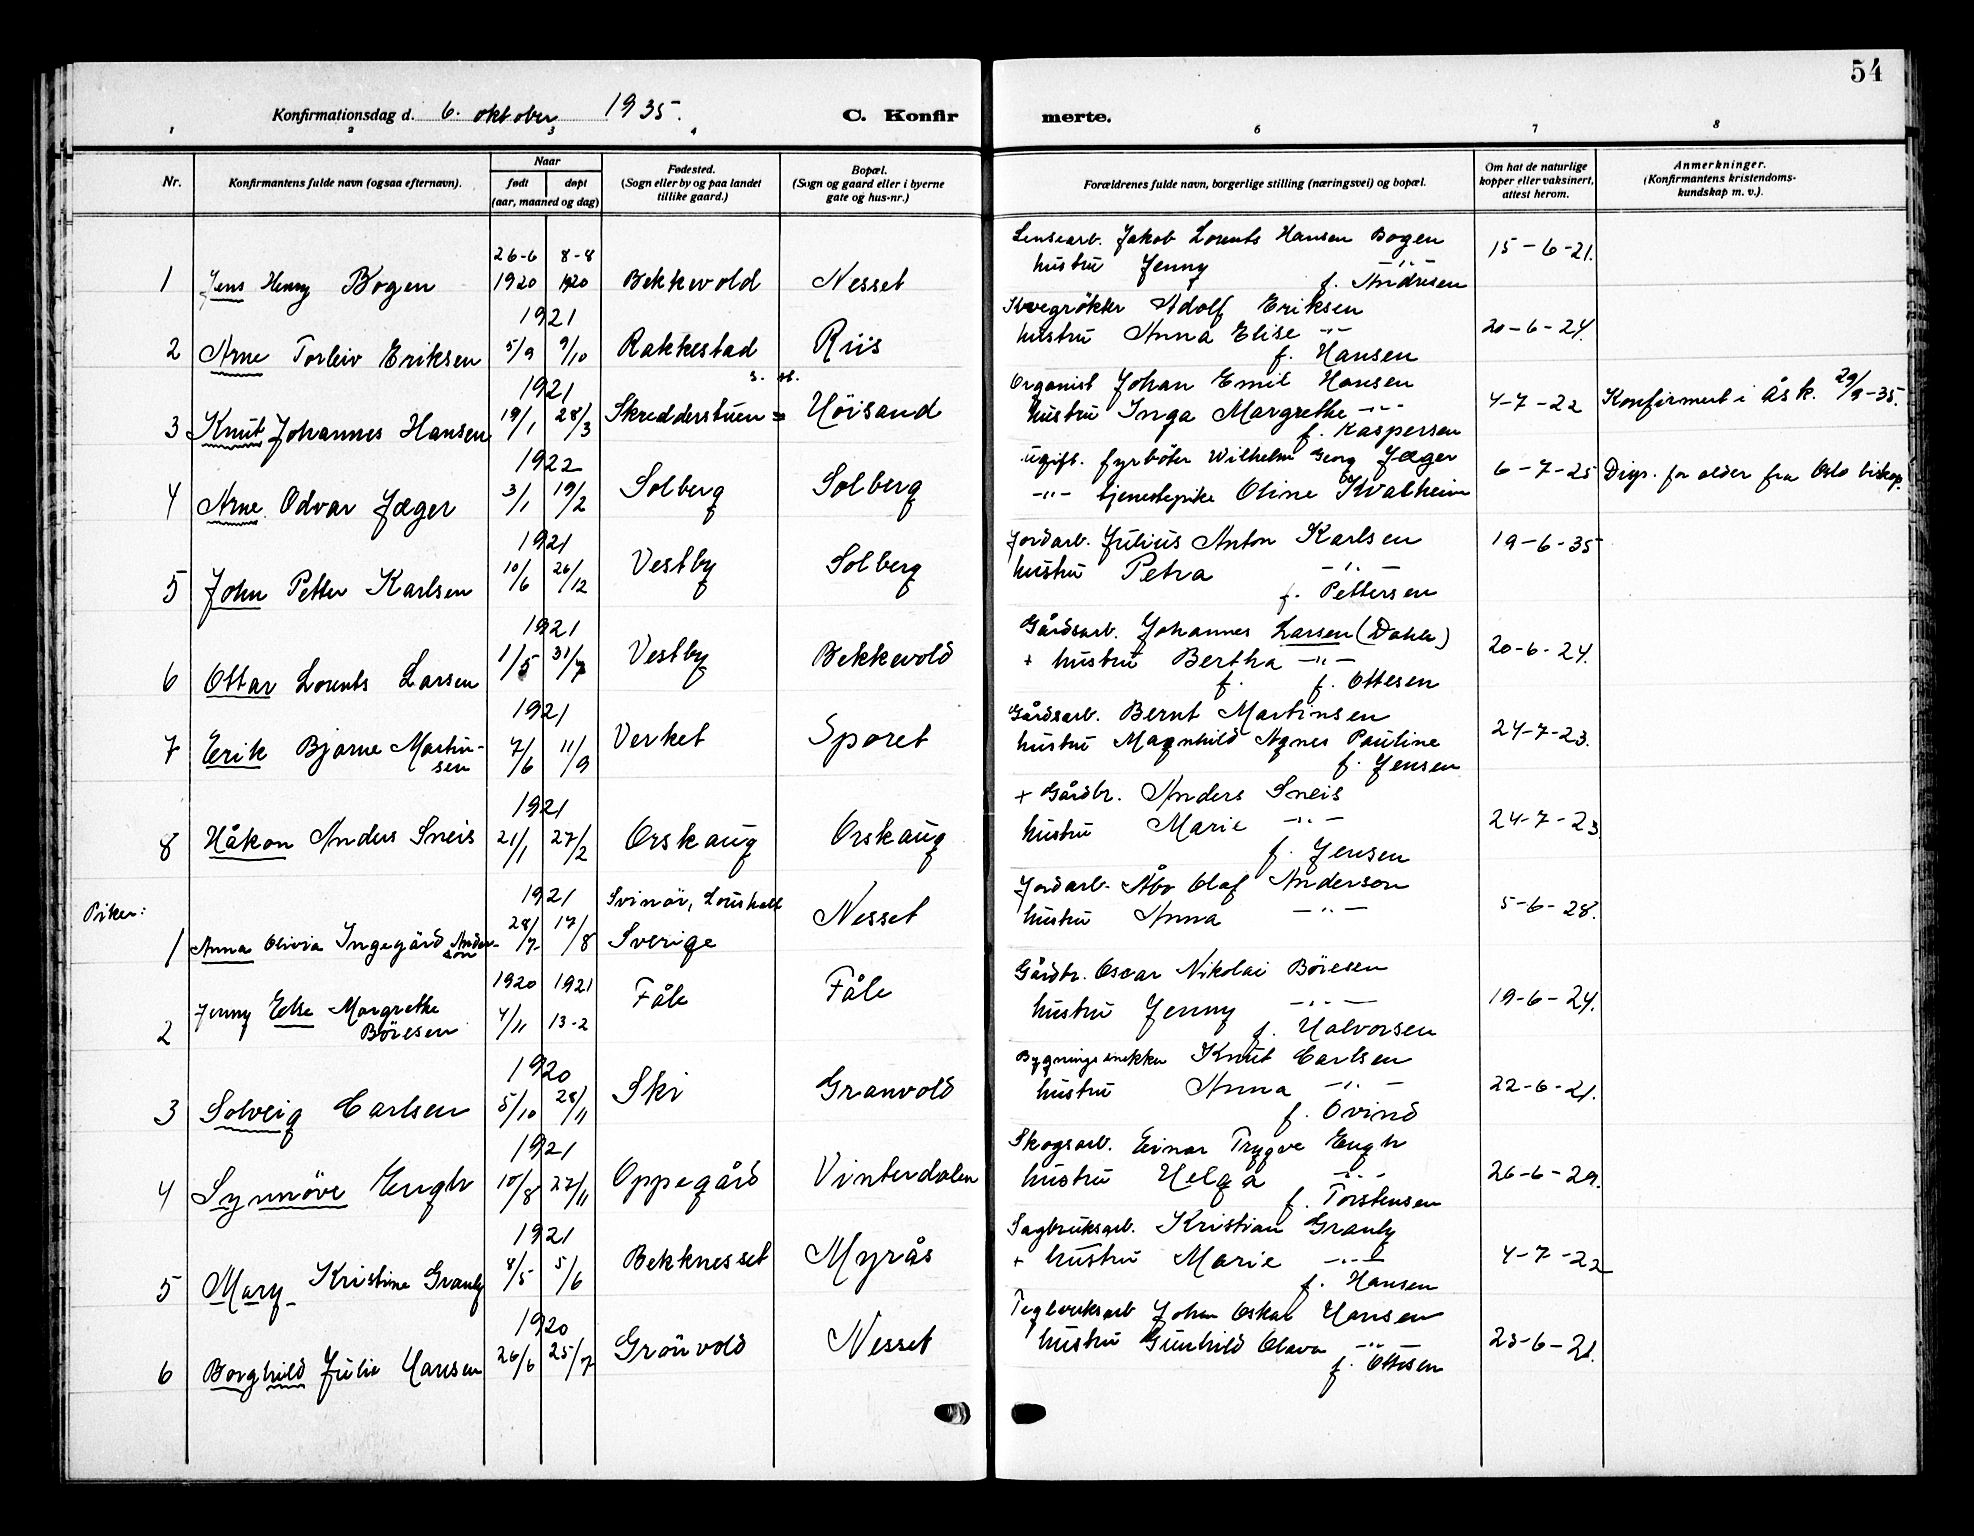 54
Konfirmationsdag d. 6. oktober 1935. C. Konfirmerte.
1 2 3 4 6 7 8
Nr.
Konfirmantens fulde navn (ogsaa efternavn).
Naar
født døpt
(aar, maaned og dag)
Fødested.
(Sogn eller by og paa landet
tillike gaard.)
Bopæl.
(Sogn og gaard eller i byerne
gate og hus-nr.)
Forældrenes fulde navn, borgerlige stilling (næringsvei) og bopæl.
Om hat de naturlige
kopper eller vaksinert,
attest herom.
Anmerkninger.
(Konfirmantens kristendoms-
kundskap m. v.).
Lensearb. Jakob Lorents Hansen Bogen 15-6-21.
26-6 8-8 hustru Jenny -"-
1 Jens Henny Bogen 1920 1920 Bekkevold Nesset f. Andresen
1921 Adolf Eriksen
hustru Anna Elise -"- 20-6-24.
2 Arne Torleiv Eriksen 5/9 9/10 Rakkestad Riis f. Hansen
1921 s. st. Organist Johan Emil Hansen
3 Knut Johannes Hansen 19/1 28/3 Skredderstuen = Höisand hustru Inga Margrethe -"- 4-7-22 Konfirmert i Ås k. 29/9-35.
f. Kaspersen
1922 ugift. fyrböter Wilhelm Georg Jæger
4 Arne Odvar Jæger 3/1 19/2 Solberg Solberg -"- tjenestepike Oline Kvalheim 6-7-25 Disp. for alder fra Oslo biskop.
1921 Jordarb. Julius Anton Karlsen 19-6-35
5 John Petter Karlsen 10/6 26/12 Vestby Solberg hustru Petra -"-
f. Pettersen
1921 Gårdsarb. Johannes Larsen (Dahle)
6 Ottar Lorents Larsen 1/5 31/7 Vestby Bekkevold + hustru Bertha -"- 20-6-24.
f. f. Ottesen
1921 Gårdsarb. Bernt Martinsen
7 Erik Bjarne Martin-
sen 7/6 11/9 Verket Sporet hustru Magnhild Agnes Pauline 24-7-23.
f. Jensen
1921 + Gårdbr. Anders Sneis
8 Håkon Anders Sneis 21/1 27/2 Orskaug Orskaug hustru Marie -"- 24-7-23
f. Jensen
Piker:
1921 Svinör, Jordarb. Olaf Anderson
1 Anna Olivia Ingegärd Ander-
son 28/7 17/8 Sverige Nesset hustru Anna -"- 5-6-28.
1920 1921 Gårdbr. Oscar Nikolai Böresen
2 Jenny Else Margrethe
Böresen 4/11 13-2 Fåle Fåle hustru Jenny -"- 19-6-24.
f. Halvorsen
1920 Bygningssnekker Knut Carlsen
3 Solveig Carlsen 5/10 28/11 Ski Granvold hustru Anna -"- 22-6-21.
f. Övind
1921 Skogsarb. Einar Trygve Engh
4 Synnöve Engh 10/8 27/11 Oppegård Vinterdalen hustru Helga -"- 26-6-29.
f. Torstensen
1921 Sagbruksarb. Kristian Granly
5 Mary Kristine Granly 8/5 5/6 Bekknesset Myrås + hustru Marie -"- 4-7-22
f. Hansen
1920 Teglverksarb Johan Oskar Hansen
6 Borghild Julie Hansen 26/6 25/7 Grönvold Nesset hustru Gunhild Olava -"- 23-6-21.
f. Ottesen